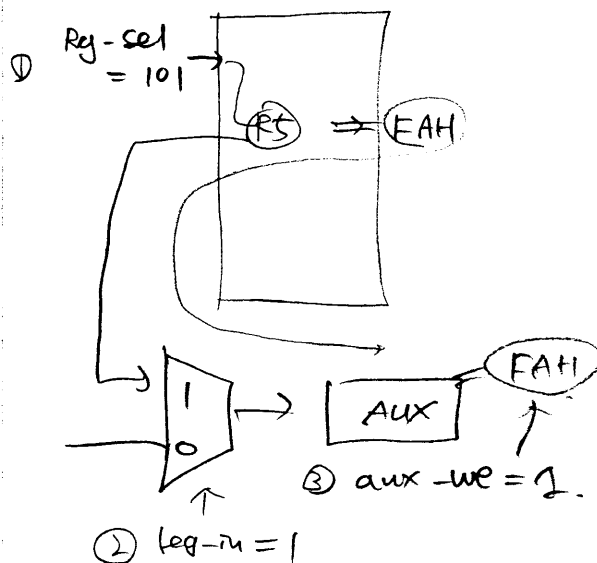 ① Rg-sel
= 101
R5 ⇒ FAH
1
0
AUX
FAH
③ aux-we = 1.
② reg-in = 1